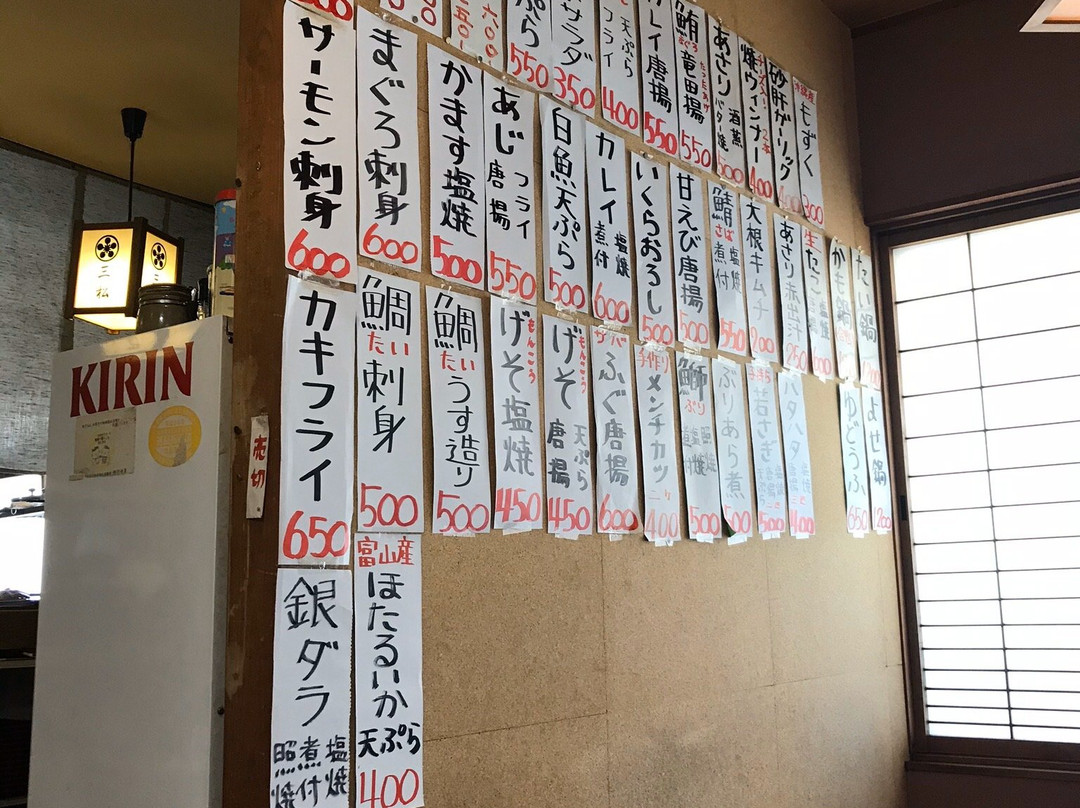 三松
KIRIN
売切
サーモン刺身
600
まぐろ刺身
600
かます塩焼
500
あじ
フライ
唐揚
550
白魚天ぷら
500
カレイ
塩焼
煮付
600
いくらおろし
500
甘えび唐揚
500
鯖
さば
塩焼
煮付
550
大根キムチ
200
あさり赤出汁
250
生たこ
かも鍋
たい鍋
ぷら
550
サラダ
350
天ぷら
フライ
400
カレイ唐揚
550
鮪
まぐろ
竜田揚
550
あさり
酒蒸
バター焼
500
焼ウィンナー
400
砂肝ガーリック
もずく
300
カキフライ
650
鯛
たい
刺身
500
鯛
たい
うす造り
500
もんごう
げそ塩焼
450
もんごう
げそ
天ぷら
唐揚
450
ふぐ唐揚
600
手作り
メンチカツ
400
鰤
ぶり
塩焼
照焼
500
ぶりあら煮
500
若さぎ
500
ハタハタ
400
ゆどうふ
650
よせ鍋
1200
銀ダラ
塩焼
煮付
照焼
富山産
ほたるいか
天ぷら
400